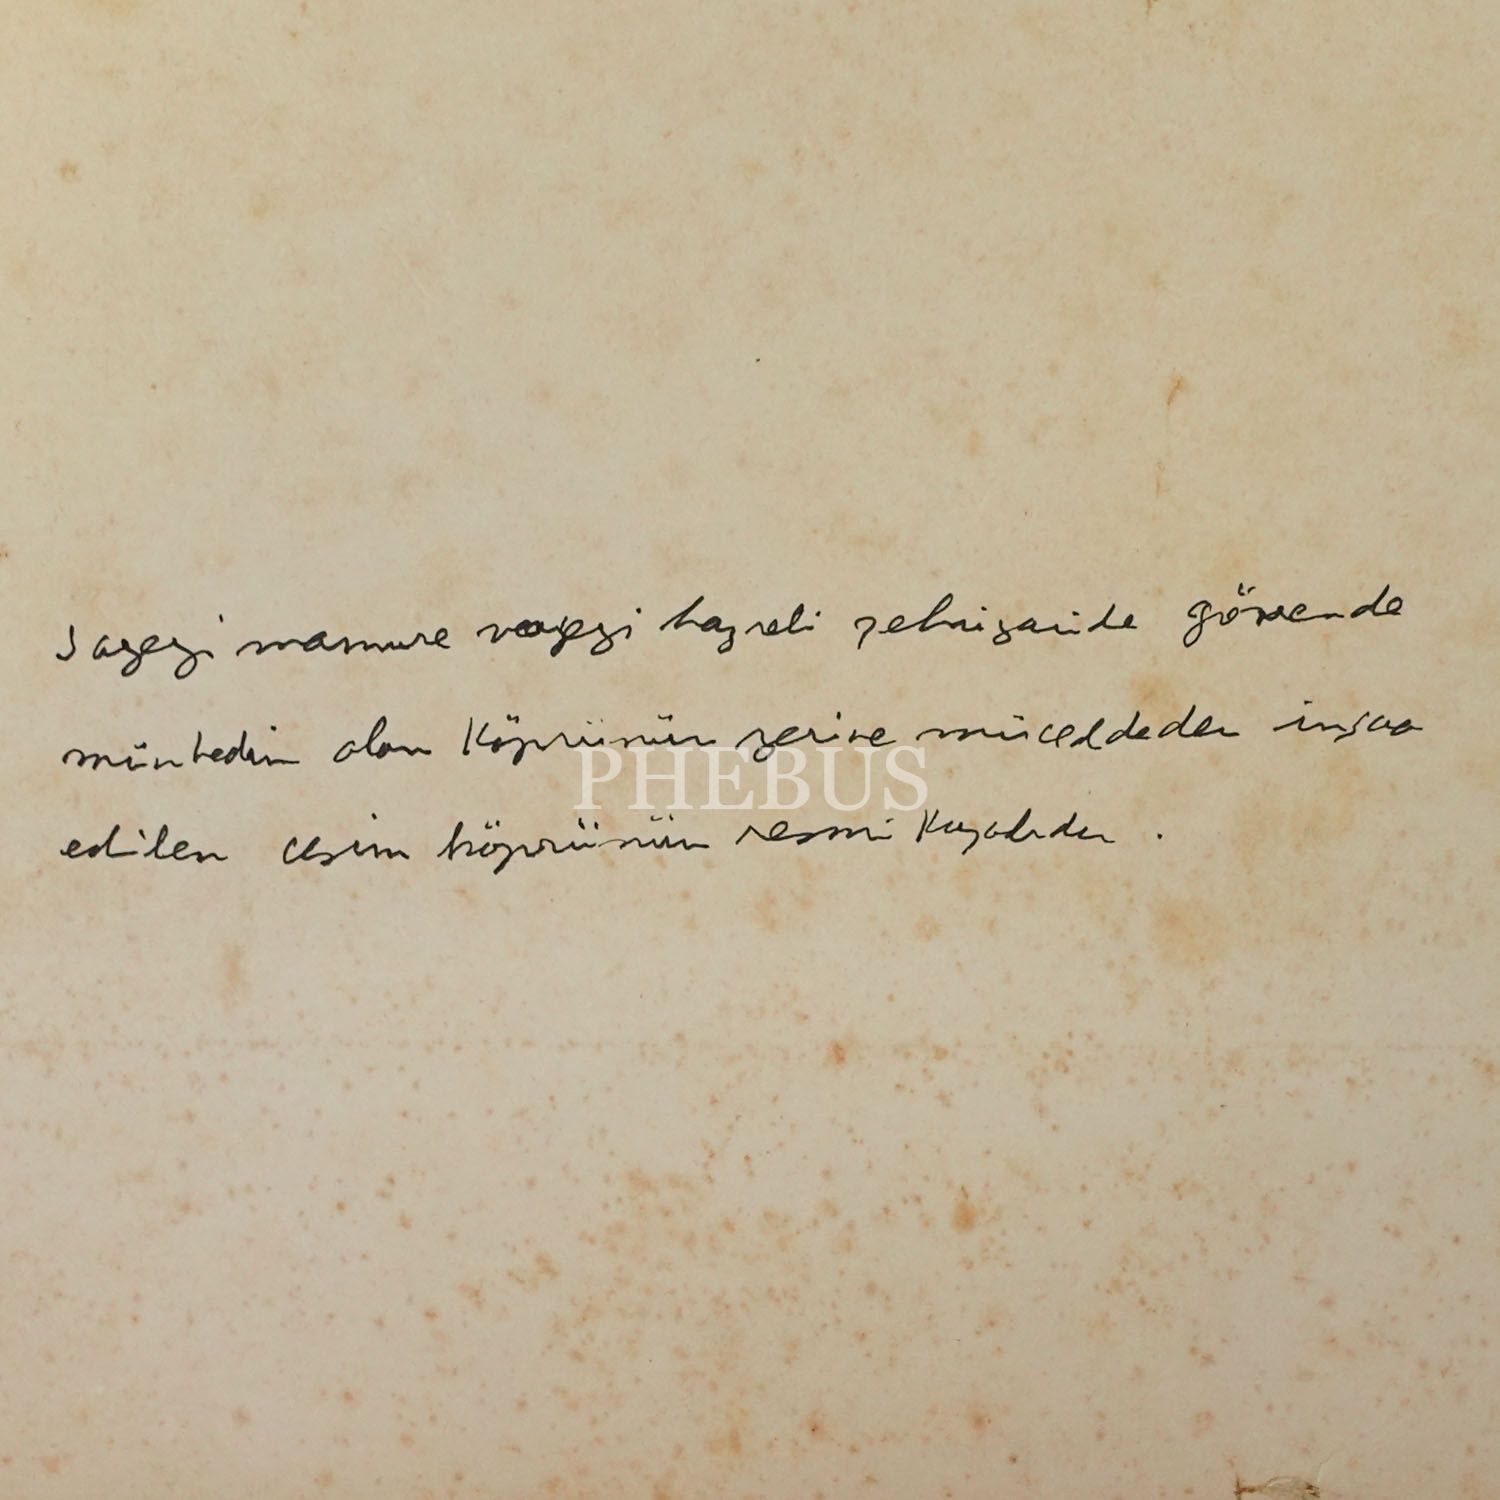 Sayeyi mamure vayeyi hazreti şehriyaride Gönende
münhedim olan Köprünün yerine müceddeden inşaa
PHEBUS
edilen cesim köprünün resmi Küşadıdır.